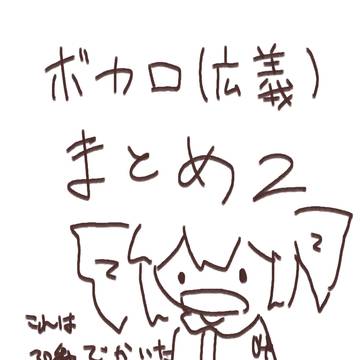 ボカロ(広義)
まとめ2
これは
30秒でかいた